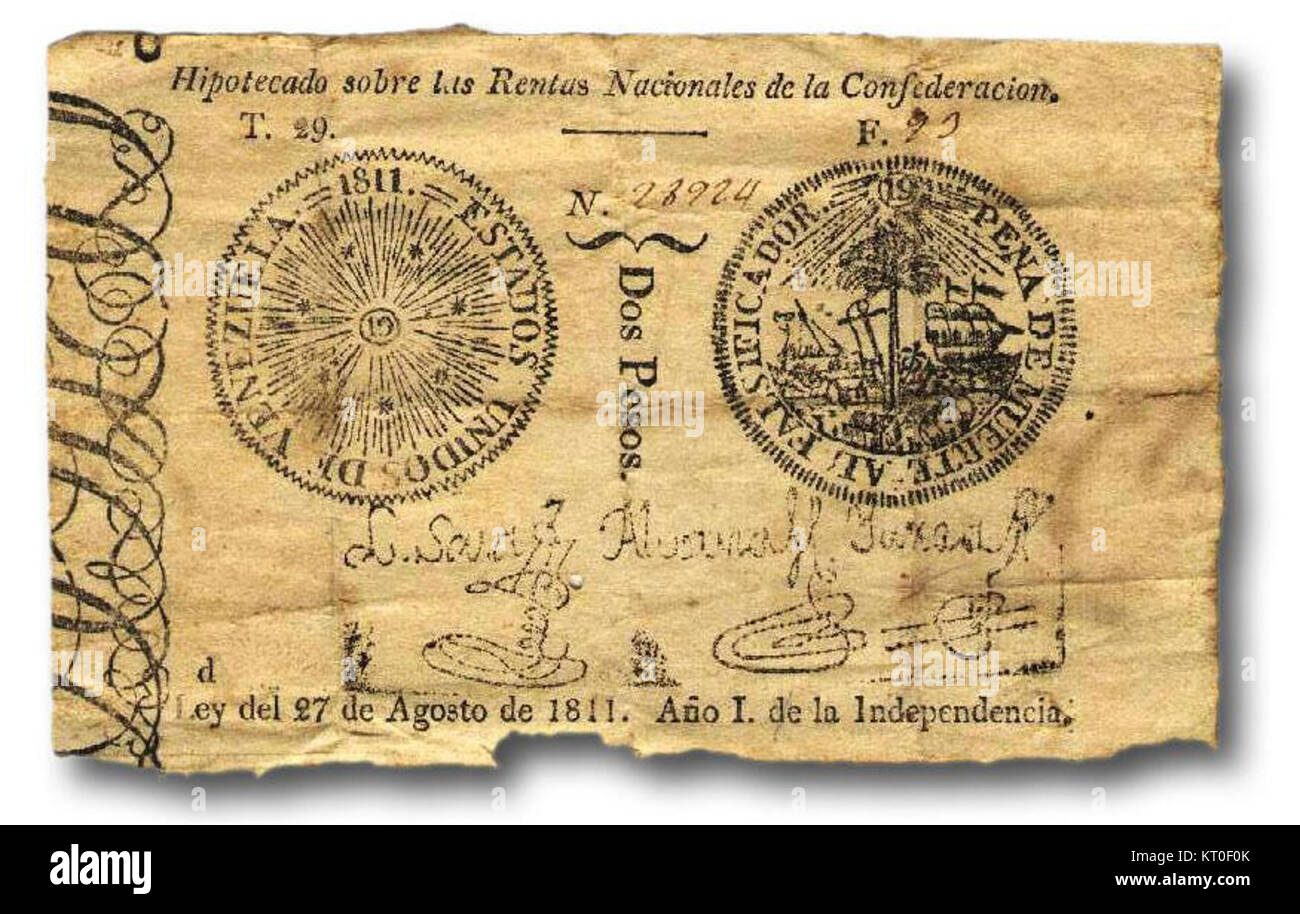 Hipotecado sobre las Rentas Nacionales de la Confederacion.
T. 29.
F. 93
N. 23924
1811. ESTADOS UNIDOS DE VENEZUELA.
19
Dos Pesos.
19
PENA DE MUERTE AL FALSIFICADOR.
d
Ley del 27 de Agosto de 1811. Año I. de la Independencia.
alamy
a
alamy stock photo
KT0F0K
www.alamy.com